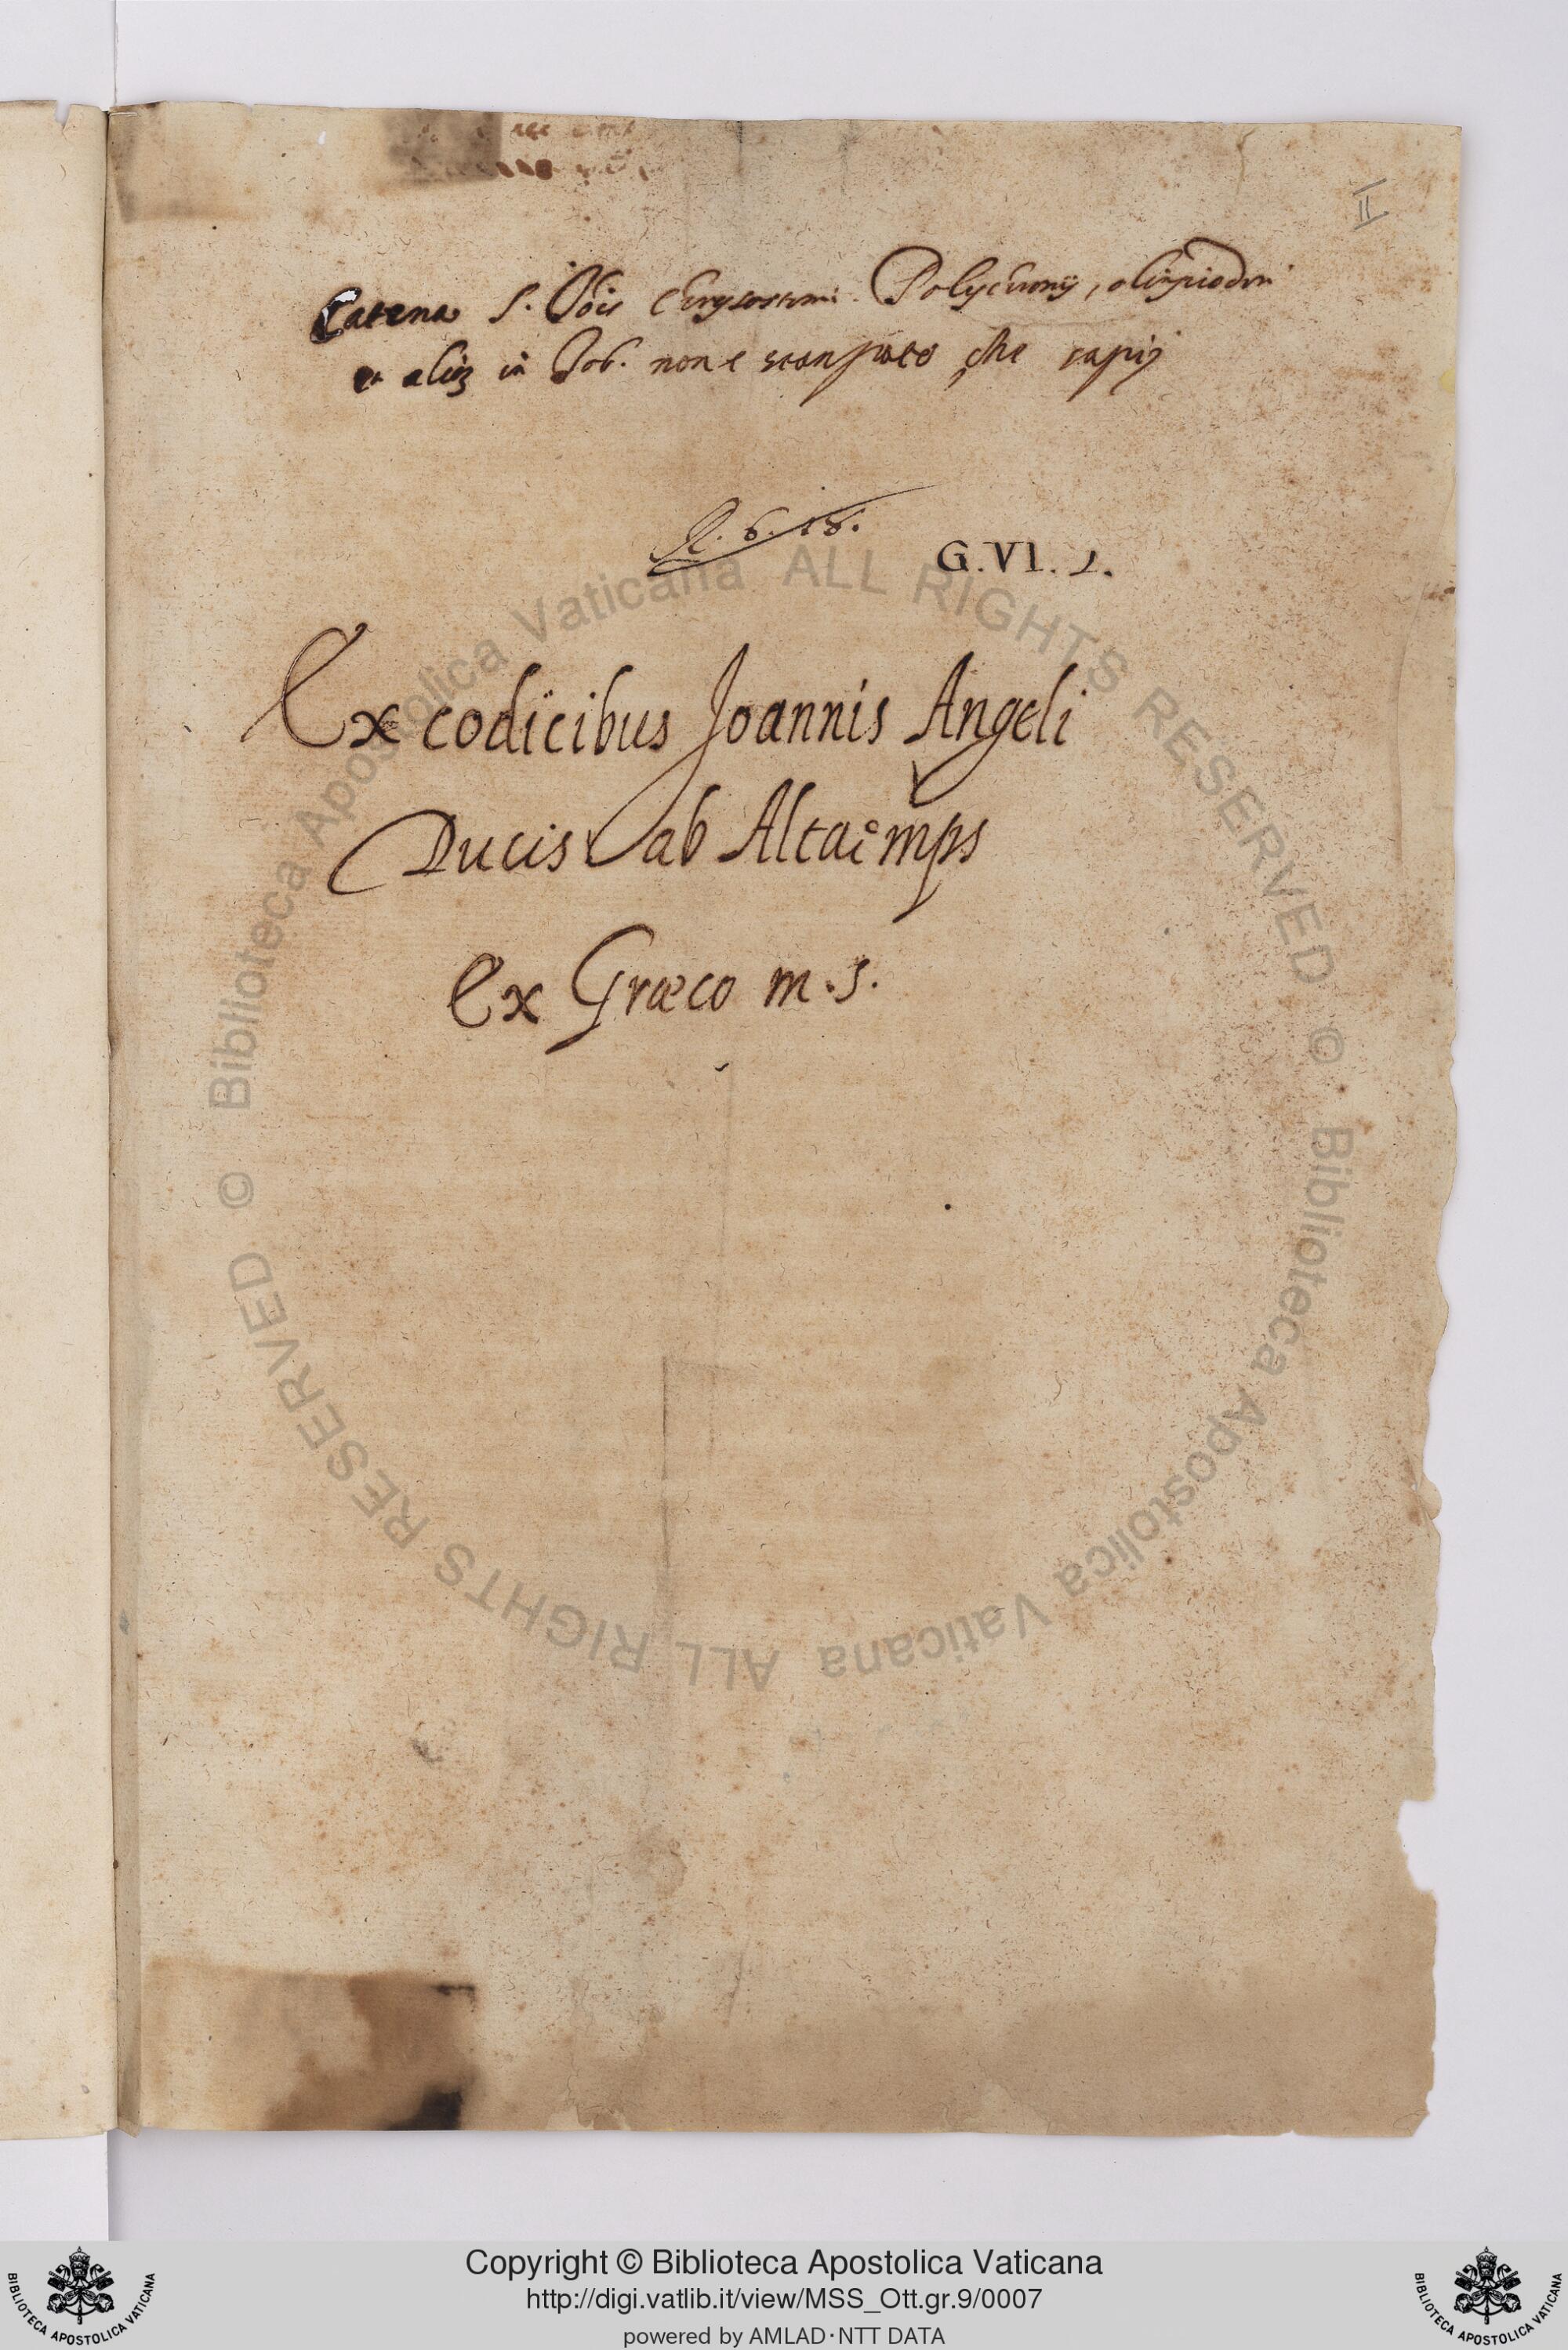 II
Catena S. Jōis Chrysostomi. Polychronij, olimpiodori
et alior in Job. non e stampato che sapij
Q. 6. 18.
G.VI.1.
Ex codicibus Joannis Angeli
Ducis ab Altaemps
Ex Græco m.s.
© Biblioteca Apostolica Vaticana ALL RIGHTS RESERVED
© Biblioteca Apostolica Vaticana ALL RIGHTS RESERVED
Copyright © Biblioteca Apostolica Vaticana
http://digi.vatlib.it/view/MSS_Ott.gr.9/0007
powered by AMLAD·NTT DATA
BIBLIOTECA APOSTOLICA VATICANA
BIBLIOTECA APOSTOLICA VATICANA